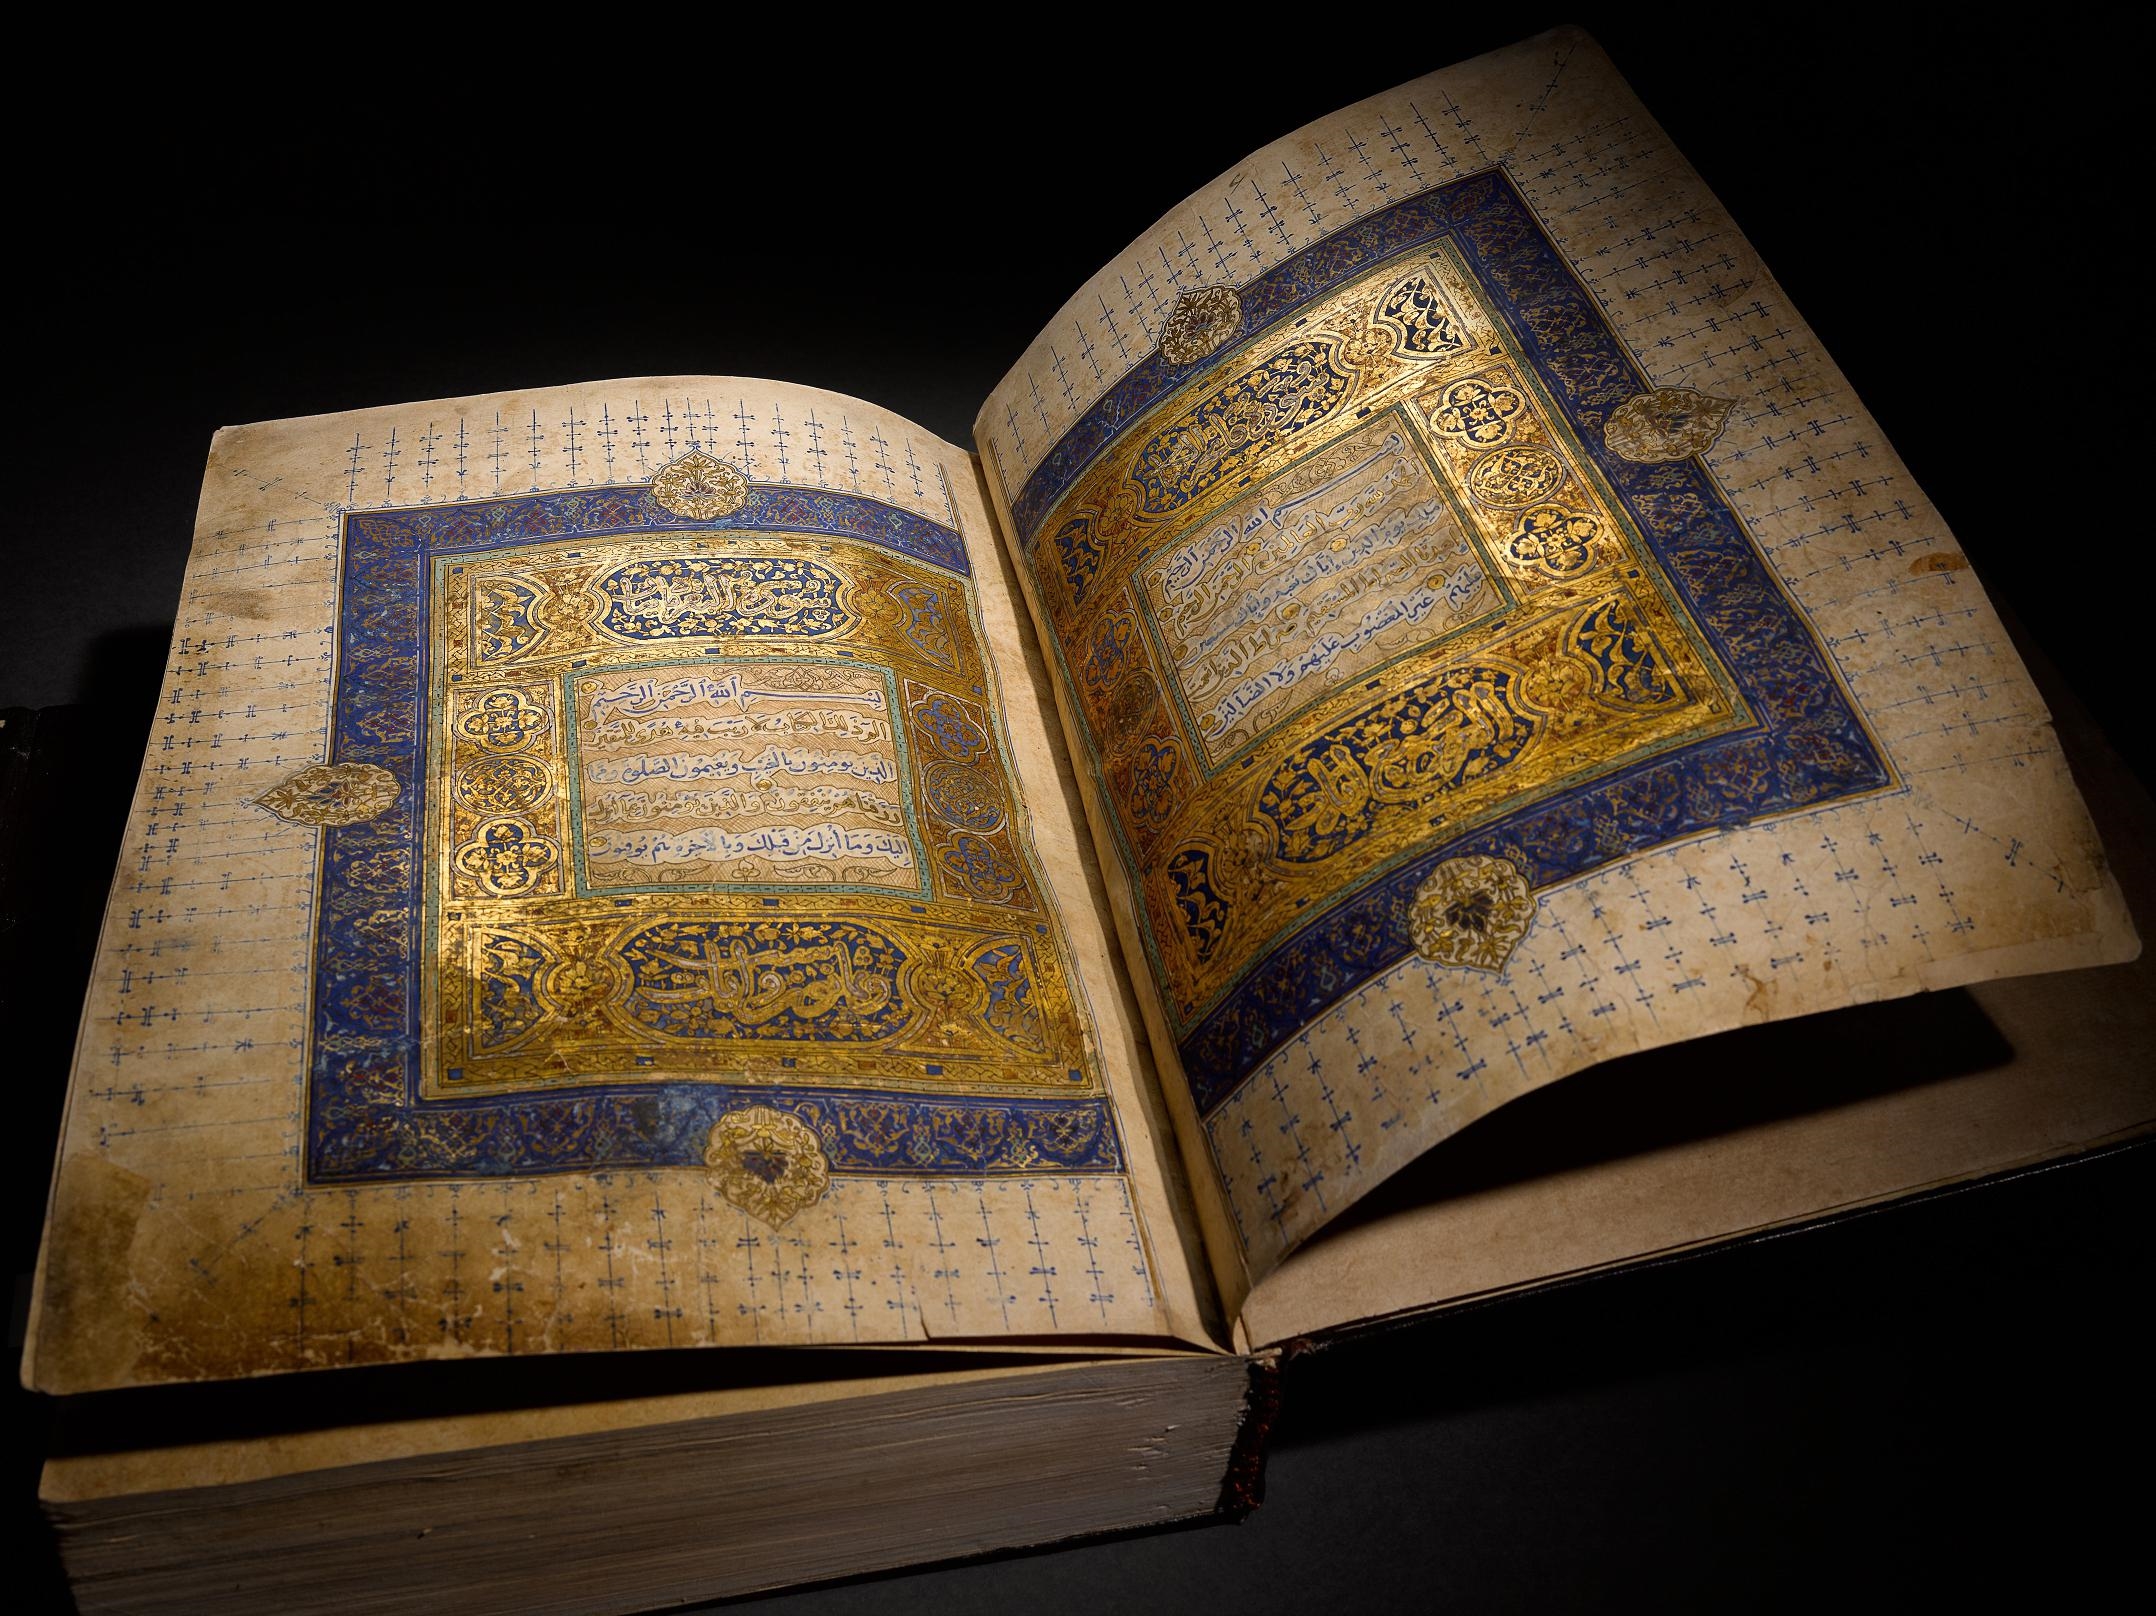 بسم الله الرحمن الرحيم
الحمد لله رب العالمين الرحمن الرحيم
ملك يوم الدين إياك نعبد وإياك نستعين
اهدنا الصراط المستقيم صراط الذين أنعمت
عليهم غير المغضوب عليهم ولا الضالين
سورة البقرة
بسم الله الرحمن الرحيم
الم ذلك الكتاب لا ريب فيه هدى للمتقين
الذين يومنون بالغيب ويقيمون الصلوة ومما
رزقناهم ينفقون والذين يومنون بما أنزل
إليك وما أنزل من قبلك وبالآخرة هم يوقنون